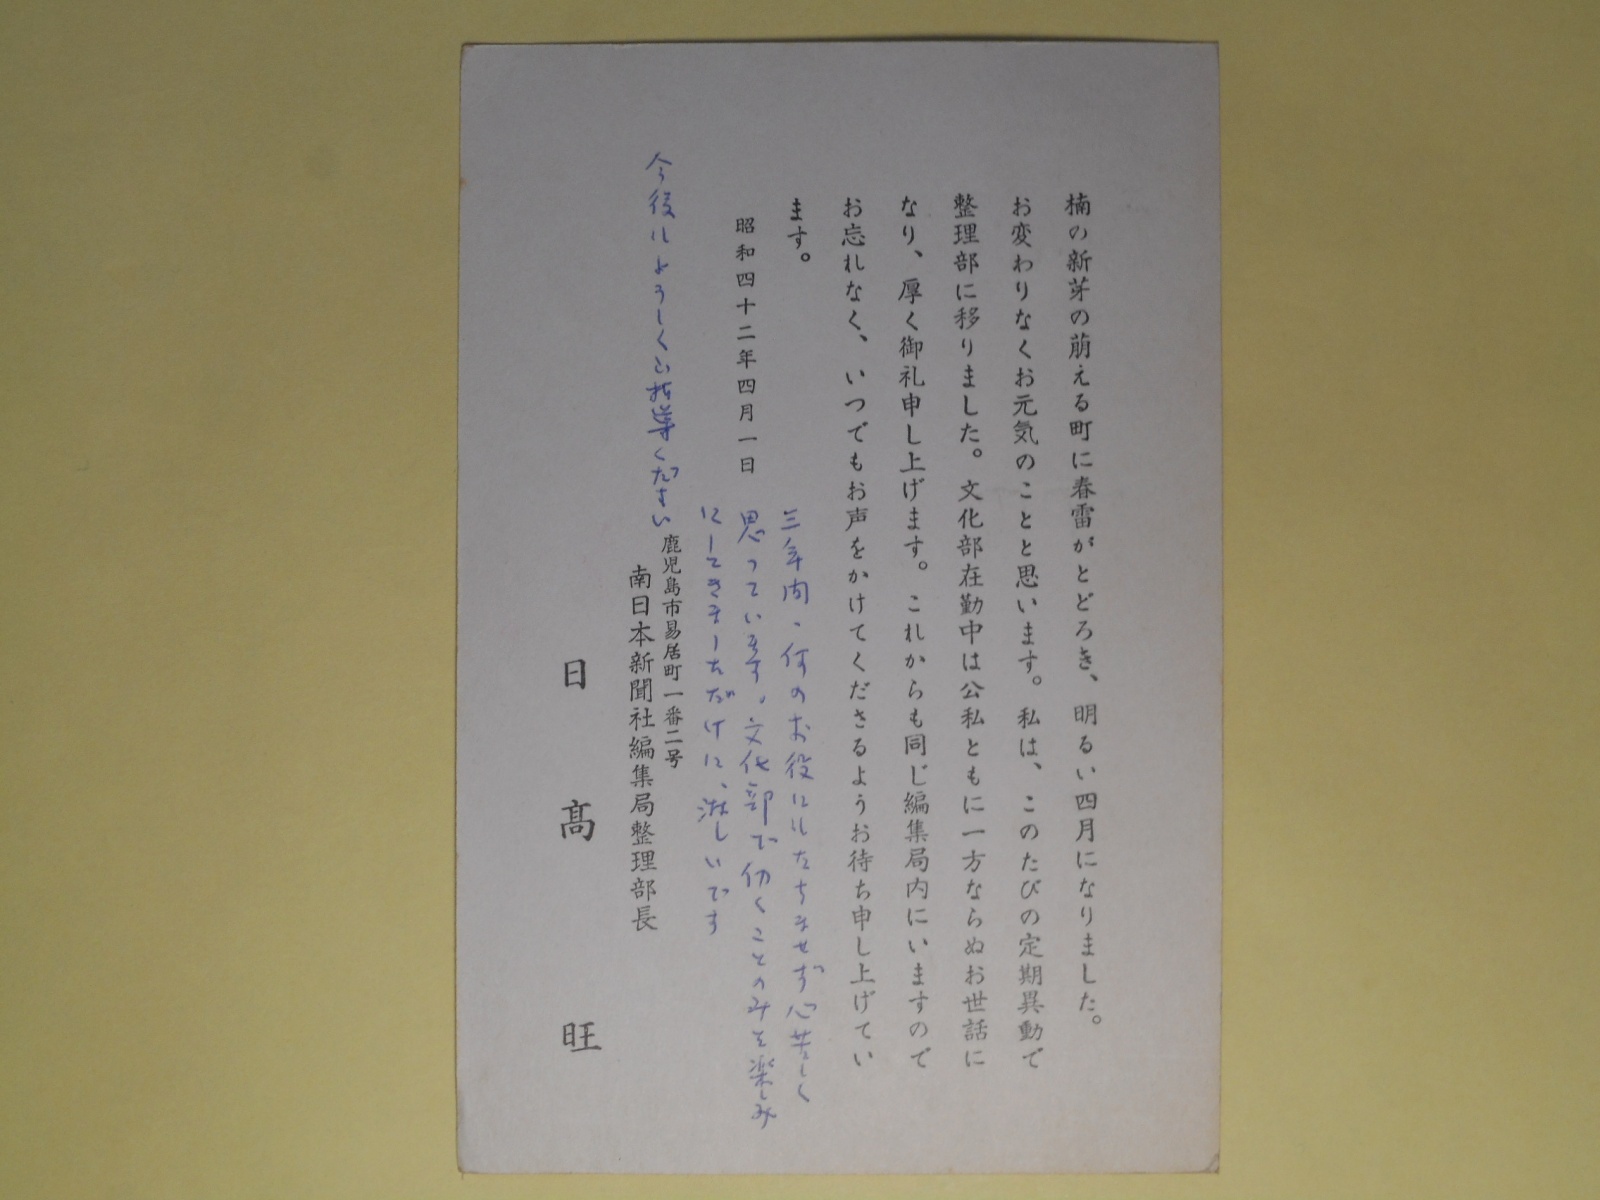 楠の新芽の萠える町に春雷がとどろき、明るい四月になりました。
お変わりなくお元気のことと思います。私は、このたびの定期異動で
整理部に移りました。文化部在勤中は公私ともに一方ならぬお世話に
なり、厚く御礼申し上げます。これからも同じ編集局内にいますので
お忘れなく、いつでもお声をかけてくださるようお待ち申し上げてい
ます。
昭和四十二年四月一日
三年間、何のお役にもたちませず心苦しく
思っています。文化部で仂くことのみを楽しみ
にしてきましただけに、淋しいです
今後もよろしく御指導ください
鹿児島市易居町一番二号
南日本新聞社編集局整理部長
日髙旺